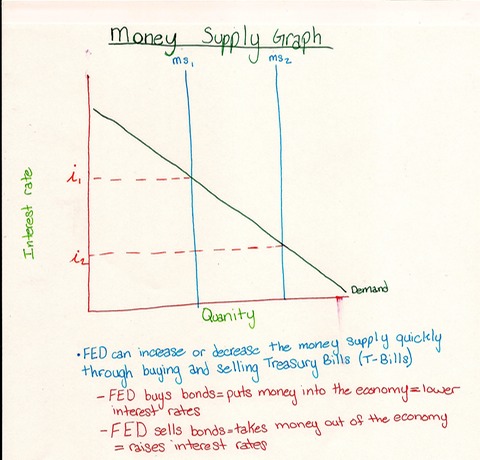 Money Supply Graph
ms₁
ms₂
i₁
Interest rate
i₂
Demand
Quanity
•FED can increase or decrease the money supply quickly
through buying and selling Treasury Bills (T-Bills)
-FED buys bonds=puts money into the economy=lower
interest rates
-FED sells bonds=takes money out of the economy
= raises interest rates